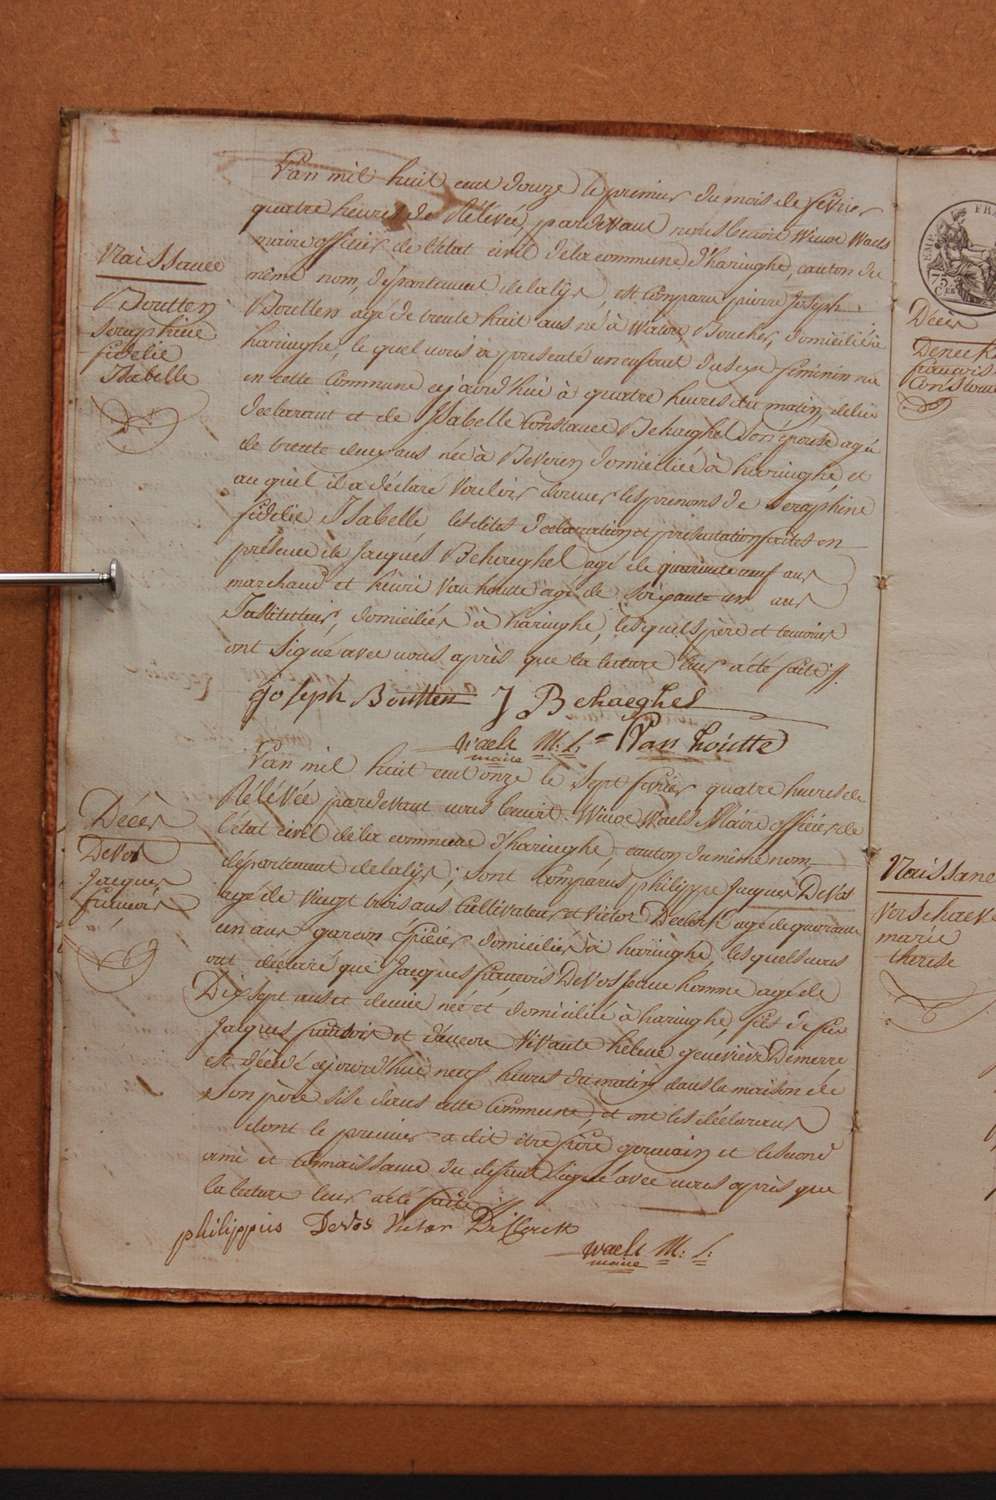 Naissance
Boutten
Seraphine
fidelie
Isabelle
L'an mil huit cent douze le premier du mois de fevrier
quatre heures de Rélévée, pardevant nous benoit Winoc Waels
maire officier de l'état civil de la commune d'haringhe, canton du
même nom, département de la lijs, est comparu pierre Joseph
Boutten agé de trente huit ans né à Watou Boucher, domicilié à
haringhe, le quel nous à presenté un enfant du sexe feminin née
en cette Commune cejourd'hui à quatre heures du matin, de lui
declarant et de Isabelle Constance Behaeghel son épouse agée
de trente deux ans née à Beveren domiciliée à haringhe, et
auquel il a déclaré vouloir donner les prenoms de Seraphine
fidelie Isabelle, les dites declaration et presentation faites en
présence de Jacques Behaeghel agé de quarante neuf ans
marchand et henri Van houtte agé de soixante un ans
Instituteur, domiciliés à haringhe, lesquels père et temoins
ont Signé avec nous après que la lecture leur a été faite //.
Joseph Boutten J Behaeghel
waels M: L: Van houtte
maire
Décès
DeVos
Jacques
francois
L'an mil huit cent onze le Sept fevrier quatre heures de
Rélévée pardevant nous benoit Winoc Waels Maire officier de
l'état civil de la commune d'haringhe, canton du même nom
département de la lijs; sont comparus philippe Jacques DeVos
agé de vingt trois ans Cultivateur et Victor Declerck agé de quarante
un ans garcon domiciliés à haringhe, lesquels nous
ont déclaré que Jacques francois DeVos jeune homme agé de
Dix sept ans et demie né et domicilié à haringhe, fils de feu
Jacques francois et d'encore Vivante héléne geneviève Démerre
est décédé cejourd'hui neuf heures du matin dans la maison de
Son père sise dans cette Commune, et ont les déclarans
dont le premier a dit être frère germain et le second
ami et connaissance du deffunt Signé avec nous après que
la lecture leur a été faite //
philippus DeVos Victor DeClerck
waels M: L:
maire
Décès
Deneck
francois
Constan
Naissanc
Verschaev
marie
therese